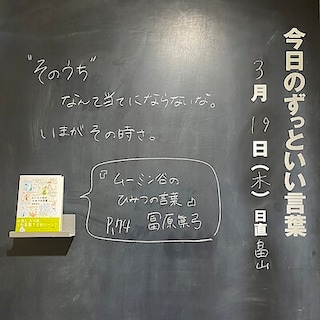 今日のずっといい言葉
3月19日(木)日直 畠山
"そのうち"
なんて当てにならないな。
いまがその時さ。
『ムーミン谷の
ひみつの言葉』
P,174 冨原眞弓